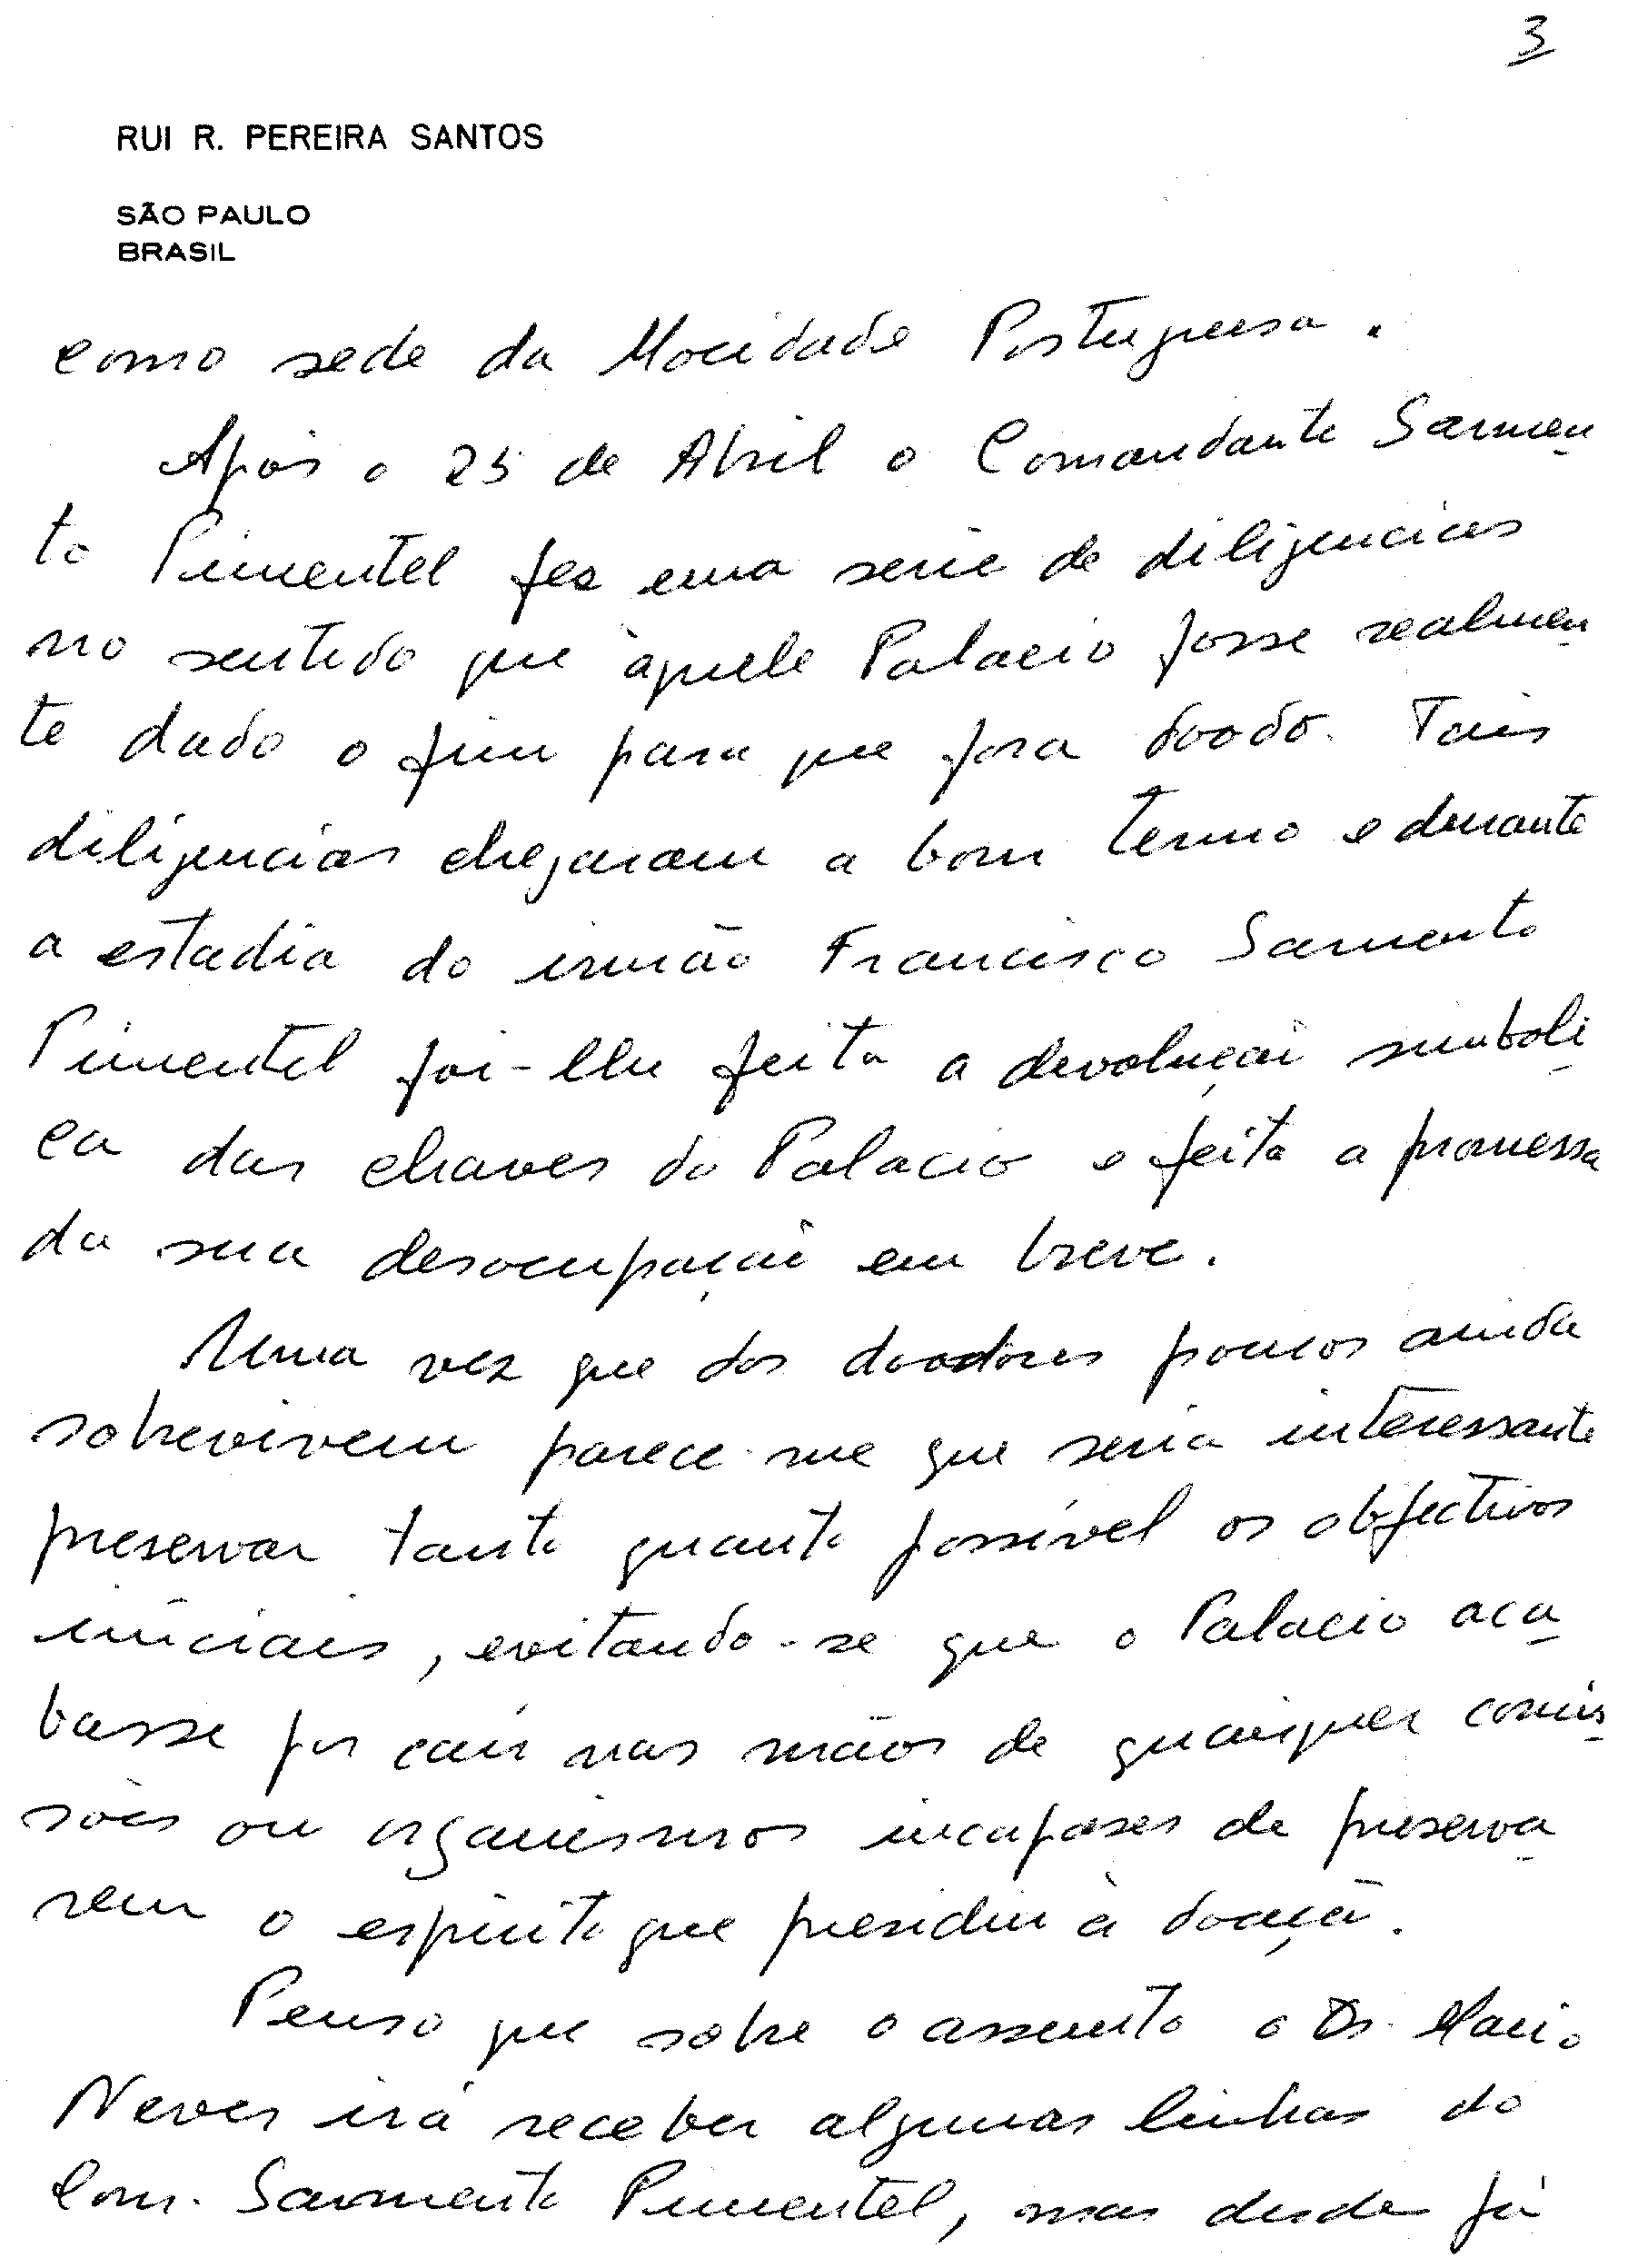 3
RUI R. PEREIRA SANTOS
SÃO PAULO
BRASIL
como sede da Mocidade Portuguesa.
Após o 25 de Abril o Comandante Sarmen
to Pimentel fez uma serie de diligencias
no sentido que àquele Palacio fosse realmen
te dado o fim para que fora doado. Tais
diligencias chegaram a bom termo e durante
a estadia do irmão Francisco Sarmento
Pimentel foi-lhe feita a devolução simboli
ca das chaves do Palacio e feita a promessa
da sua desocupação em breve.
Uma vez que dos doadores poucos ainda
sobrevivem parece-me que seria interessante
preservar tanto quanto possivel os objectivos
iniciais, evitando-se que o Palacio aca
basse por cair nas mãos de quaisquer comis
sões ou organismos incapases de preserva
rem o espirito que presidiu à doação.
Penso que sobre o assunto o Dr. Mario
Neves irá receber algumas linhas do
Com. Sarmento Pimentel, mas desde já